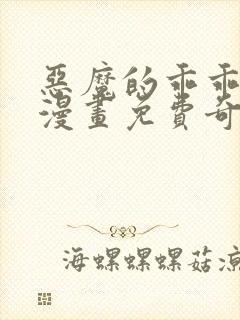 惡魔的乖乖
漫畫免費奇
海螺螺螺菇凉